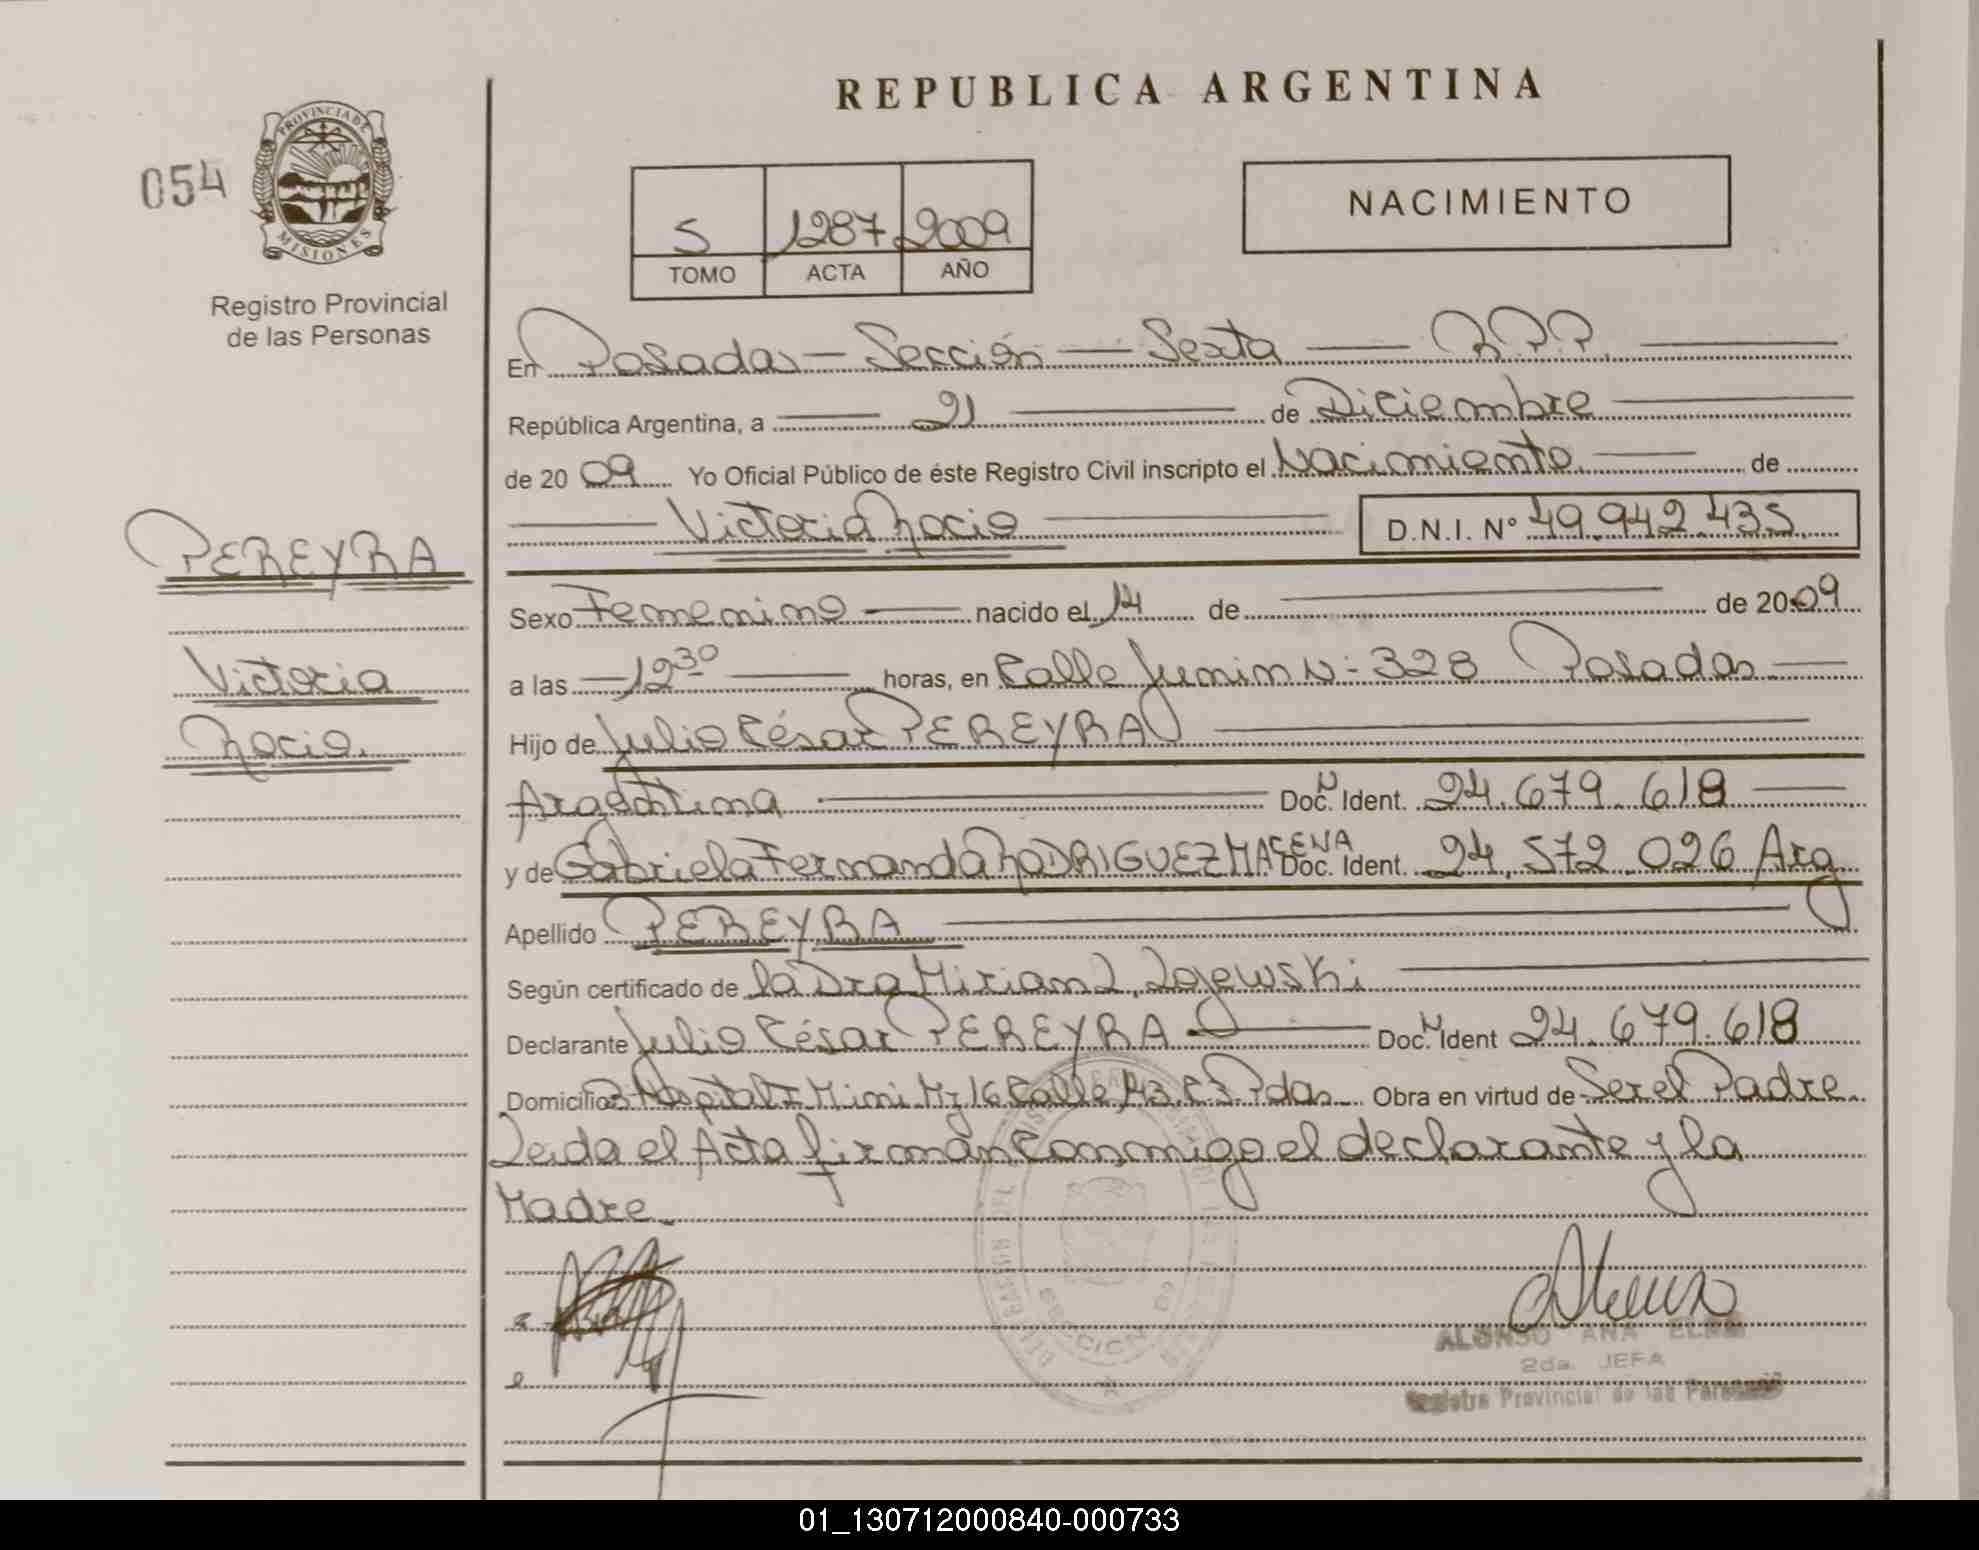 REPUBLICA ARGENTINA
PROVINCIA DE
MISIONES
054
Registro Provincial
de las Personas
5 1287 2009
TOMO ACTA AÑO
NACIMIENTO
En Posadas - Sección - Sexta - R.P.P.
República Argentina, a 21 de Diciembre
de 2009 Yo Oficial Público de éste Registro Civil inscripto el Nacimiento de
Victoria Rocio D.N.I. Nº 49.942.435
PEREYRA
Victoria
Rocio.
Sexo Femenino nacido el 14 de de 2009
a las 12 30 horas, en Calle Junin N- 328 Posadas
Hijo de Julio César PEREYRA
Argentina Doc. N Ident. 24.679.618
y de Gabriela Fernanda RODRIGUEZ MACENA Doc. Ident. 24.572.026 Arg
Apellido PEREYRA
Según certificado de la Dra Mirian L.
Declarante Julio César PEREYRA Doc. N Ident 24.679.618
Domicilio Hospital Mz 16 Calle Pdas. Obra en virtud de Ser el Padre.
Leida el Acta firman Conmigo el declarante y la
Madre.
SECCION
ALONSO ANA ELENA
2da. JEFA
Registro Provincial de las Personas
01_130712000840-000733